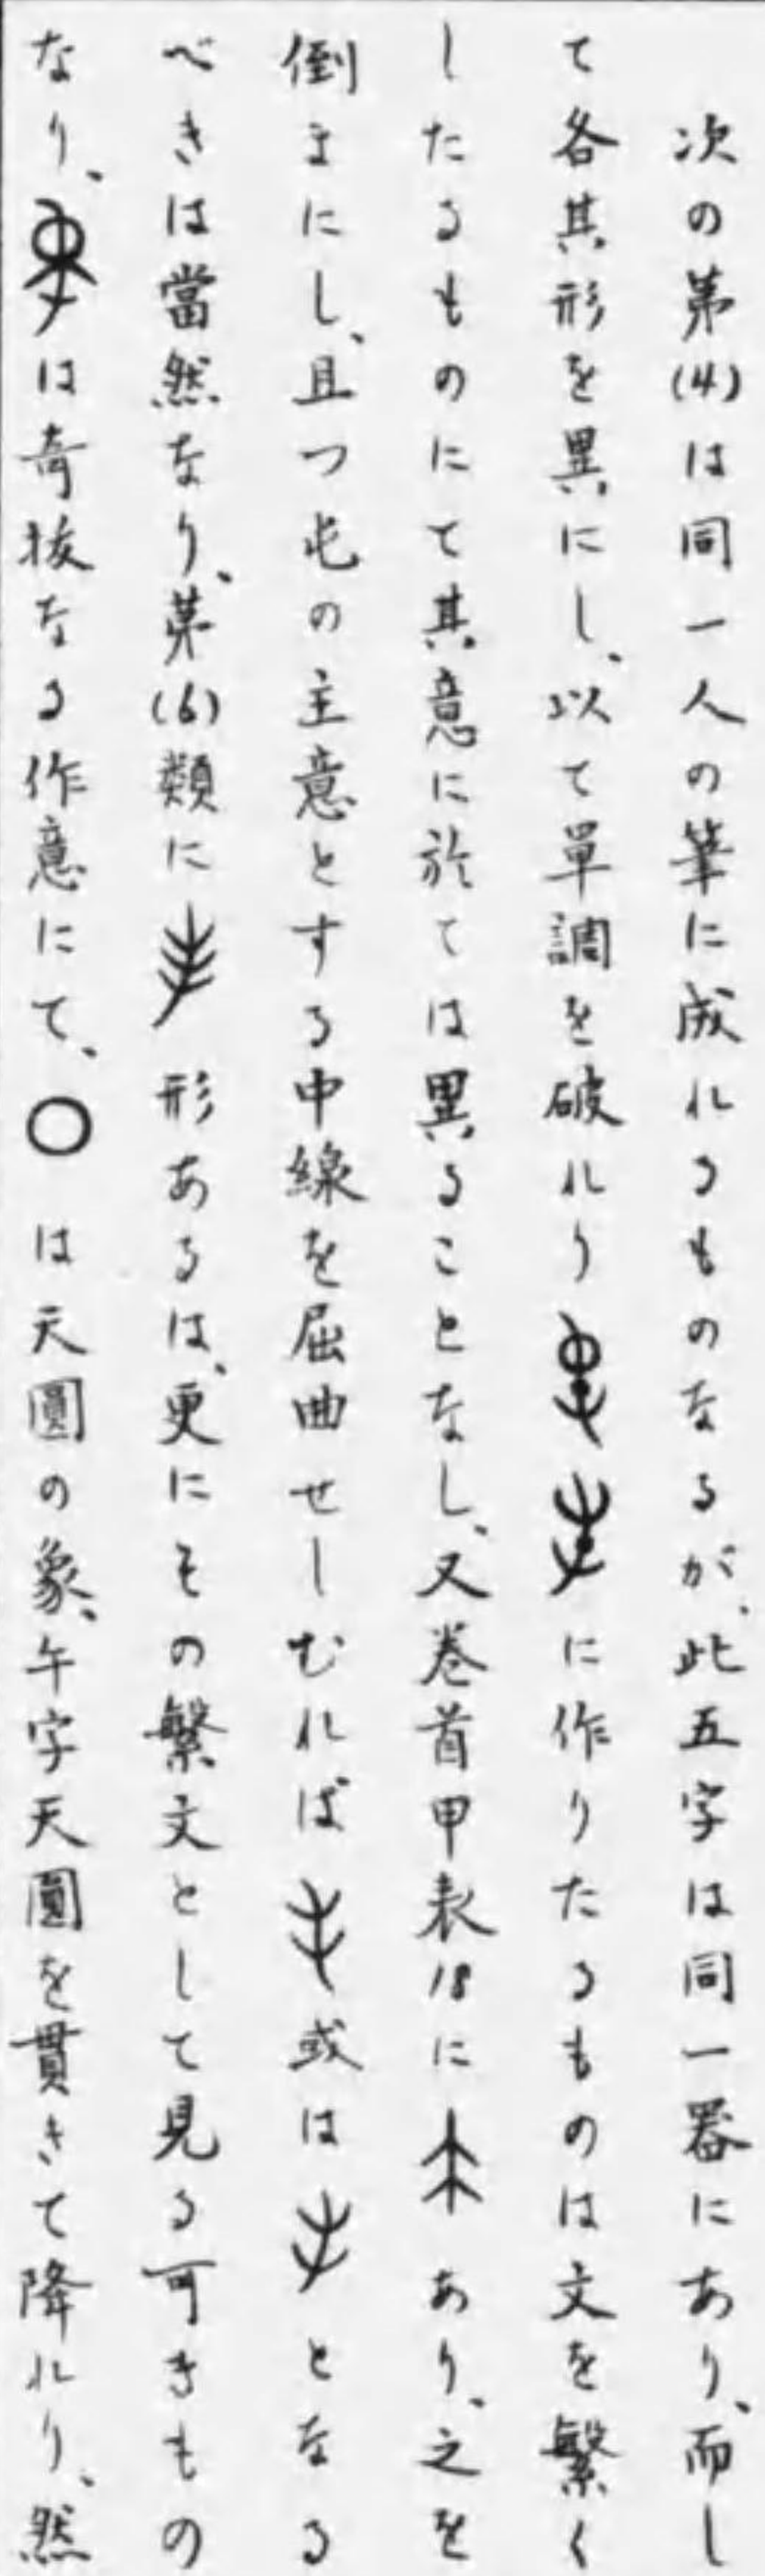 次の第(4)は同一人の筆に成れるものなるが、此五字は同一器にあり、而し
て各其形を異にし、以て單調を破れり に作りたるものは文を繁く
したるものにて其意に於ては異ることなし、又巻首甲表18に あり、之を
倒まにし、且つ屯の主意とする中線を屈曲せしむれば 或は となる
べきは當然なり、第(6)類に 形あるは、更にその繁文として見る可きもの
なり、 は奇抜なる作意にて、〇は天圓の象、午字天圓を貫きて降れり、然